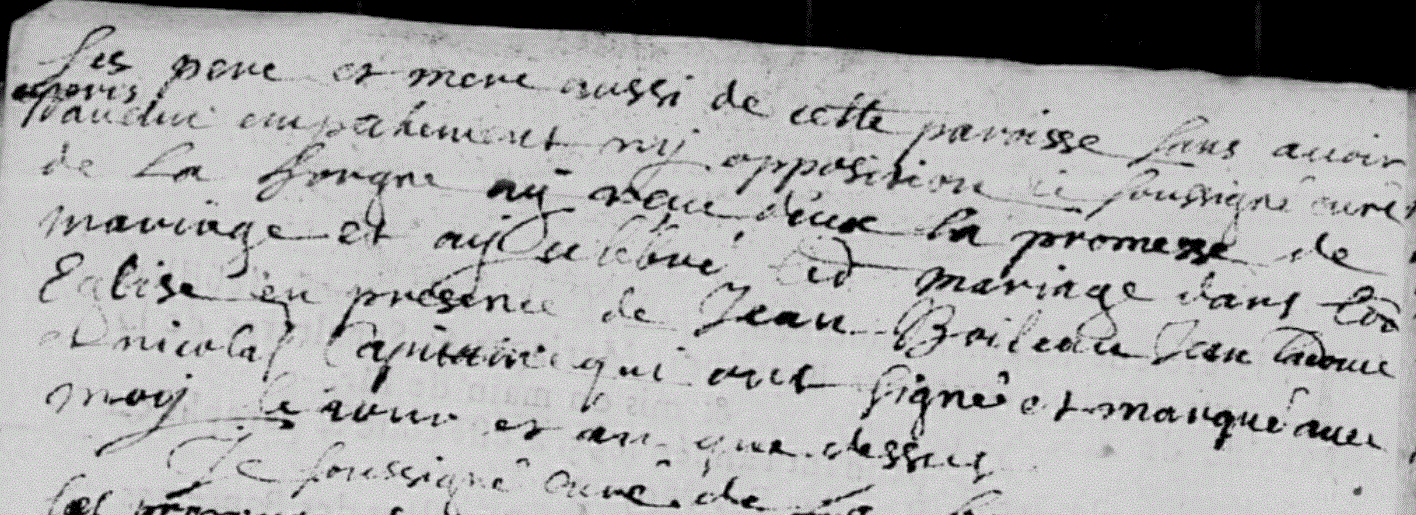 ses pere et mere aussi de cette paroisse sans avoir
apris
d'aucune empechement ny opposition ie soussigné curé
de La Horgne ay receu d'eux la promesse de
mariage et ay celebré led mariage dans lad
Eglise en presence de Jean Boileau Jean
et nicolas Capitaine qui ont signé et marqué avec
moy le iour et an que dessus
Je soussigné curé de La